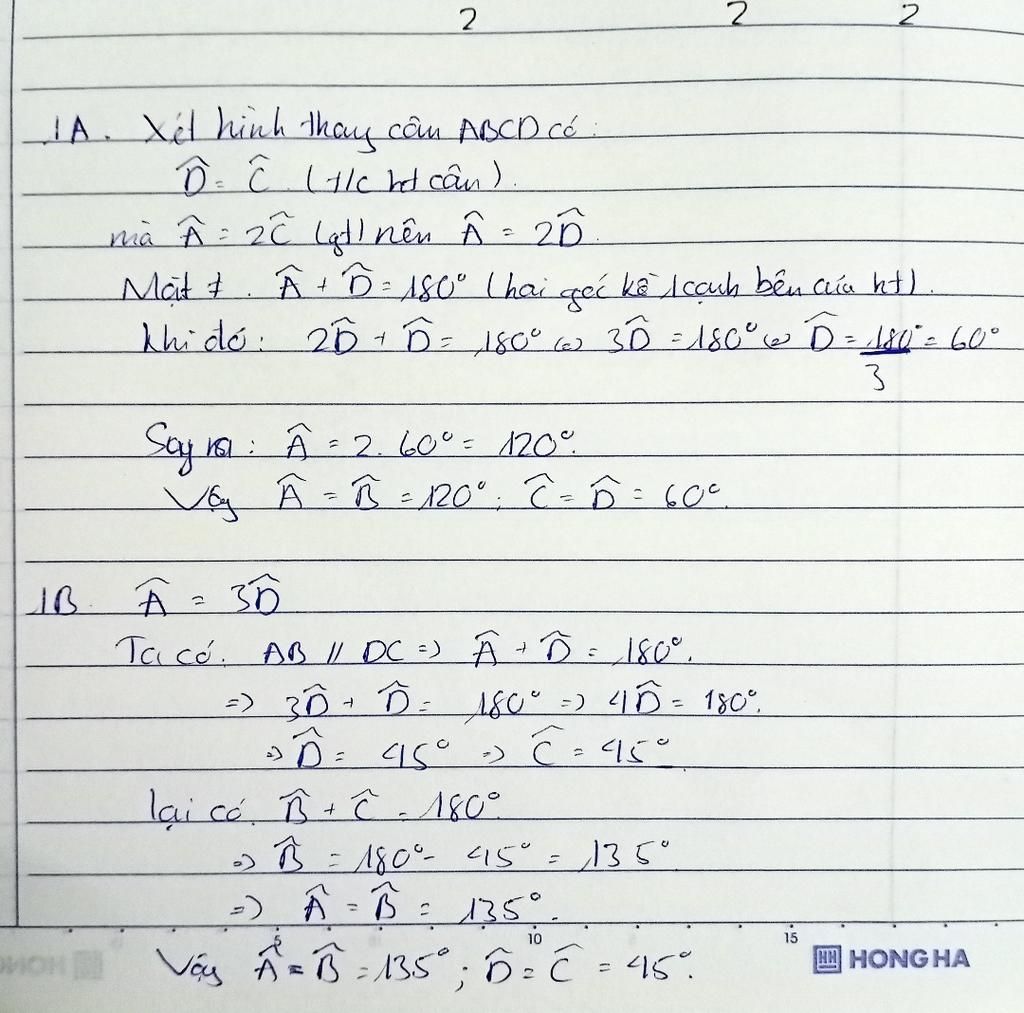 2 2 2
1A. Xét hình thang cân ABCD có:
D̂ = Ĉ (t/c ht cân).
mà Â = 2Ĉ (gt) nên Â = 2D̂
Mặt ≠. Â + D̂ = 180° (hai góc kề 1 cạnh bên của ht).
Khi đó: 2D̂ + D̂ = 180° ⇔ 3D̂ = 180° ⇔ D̂ = 180°/3 = 60°
Suy ra: Â = 2. 60° = 120°.
Vậy Â = B̂ = 120°; Ĉ = D̂ = 60°.
1B. Â = 3D̂
Ta có. AB // DC => Â + D̂ = 180°.
=> 3D̂ + D̂ = 180° => 4D̂ = 180°.
=> D̂ = 45° => Ĉ = 45°
lại có. B̂ + Ĉ = 180°
=> B̂ = 180° - 45° = 135°
=> Â = B̂ = 135°.
5 10 15
Vậy Â = B̂ = 135°; D̂ = Ĉ = 45°.
HH HONG HA